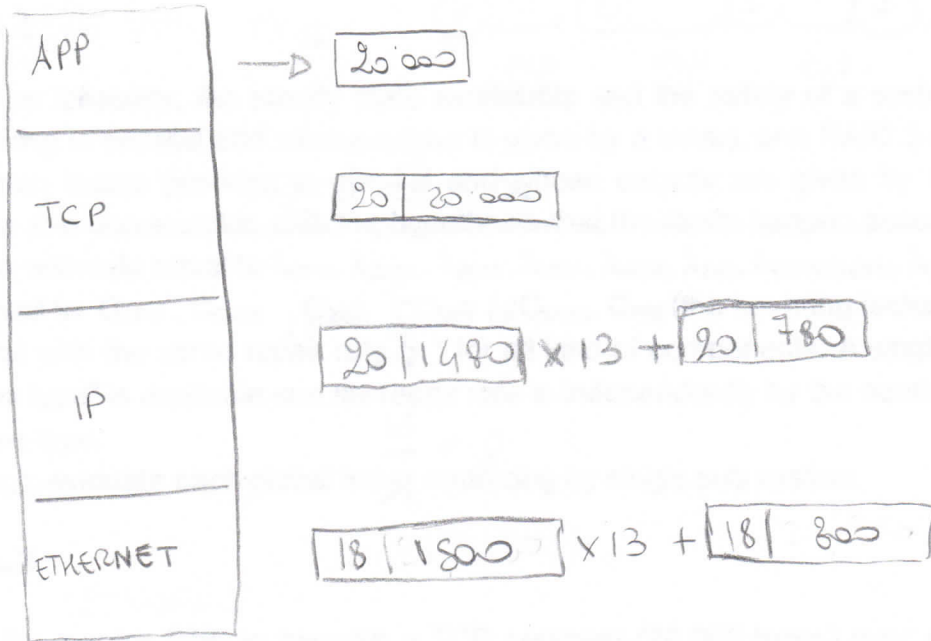 APP
20'000
TCP
20 20'000
20 1480 x 13 + 20 780
IP
ETHERNET
18 1500 x 13 + 18 800